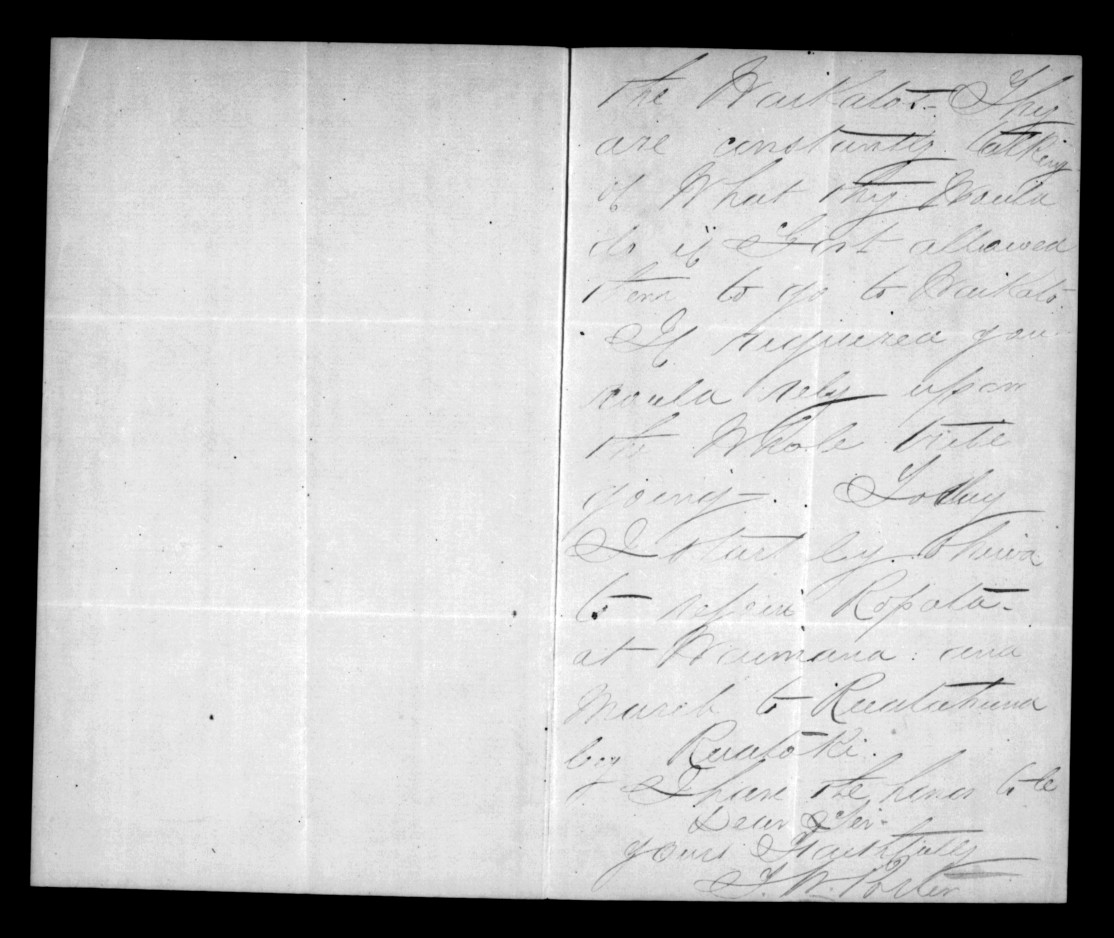 the Waikatos. They
are constantly talking
of What they Would
do if Govt allowed
them to go to Waikato.
If required you
could rely upon
the Whole tribe
going. Today
I start by Ohiwa
to rejoin Ropata
at Waimana and
March to Ruatahuna
by Ruatoki.
I have the honor to be
Dear Sir
yours Faithfully
T. W. Porter